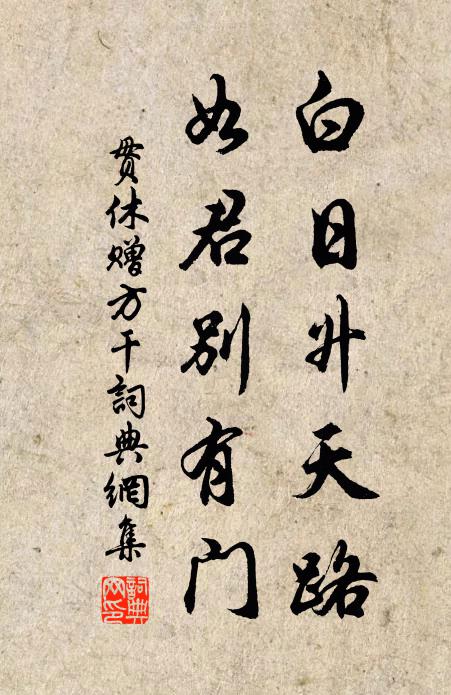 白日升天路
如君别有门
贯休赠方干詞典網集
詞典網印